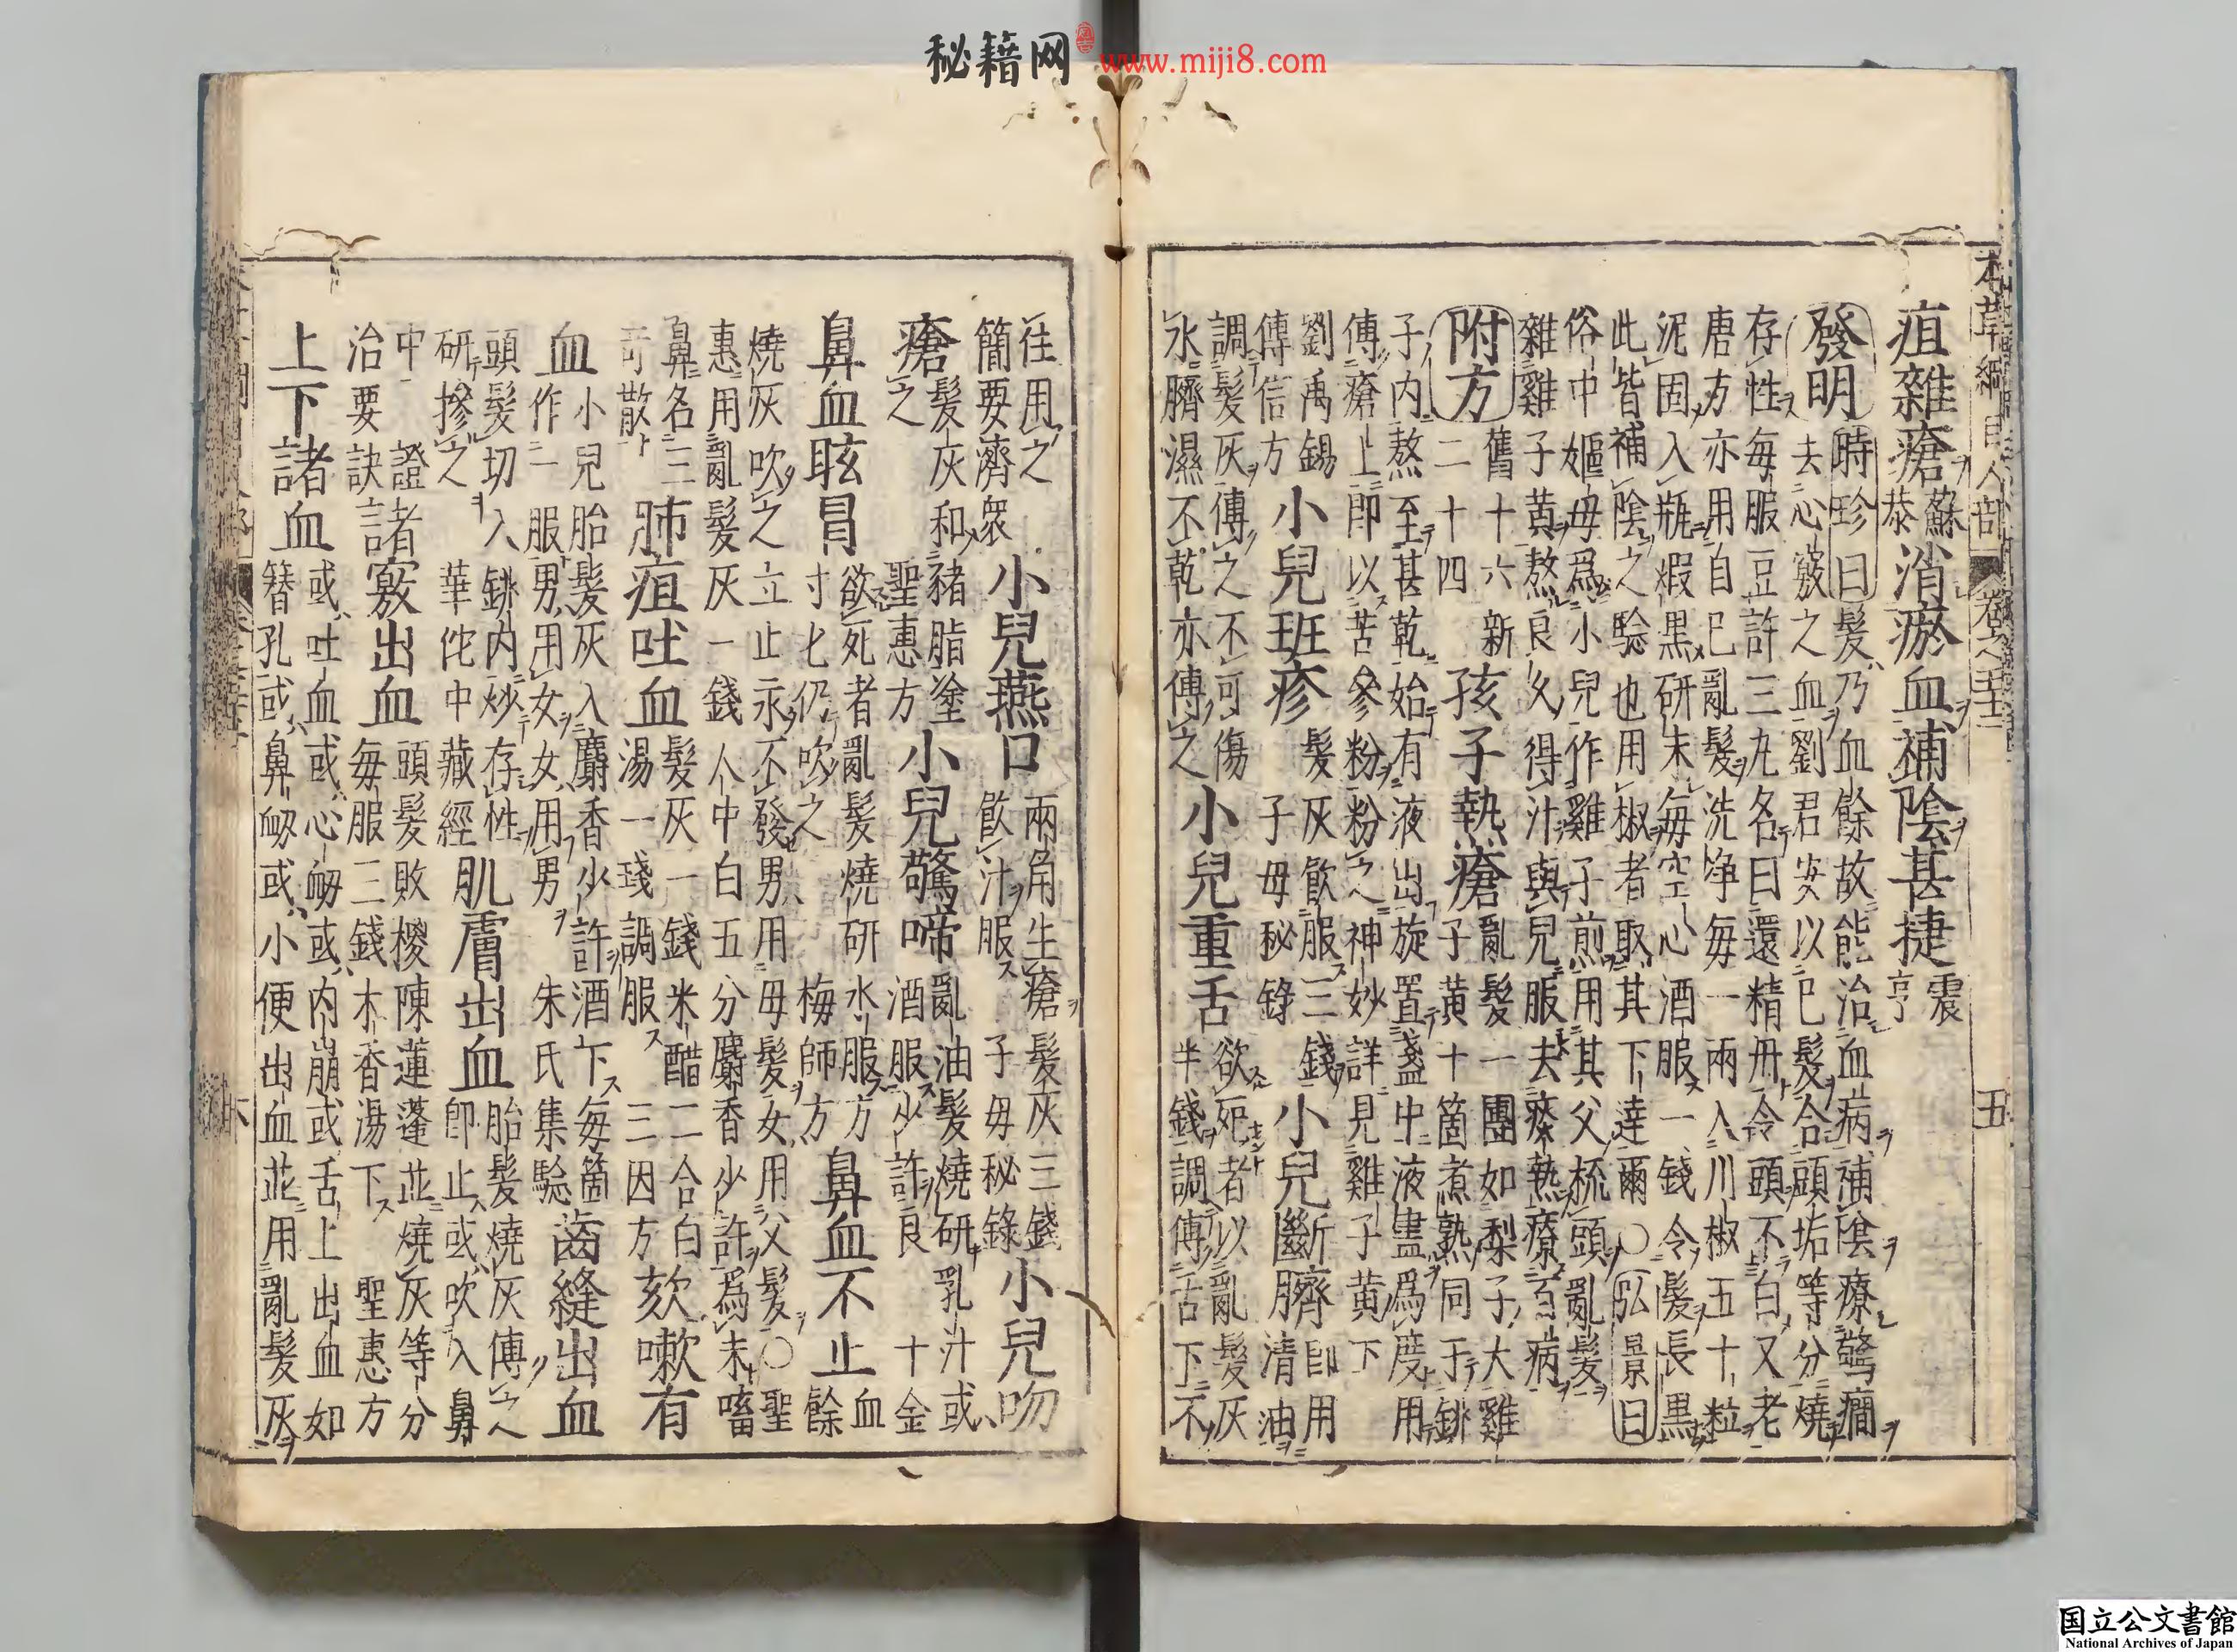 秘籍网 www.miji8.com
本草綱目人部 卷之五十二 五
疽雜瘡蘇恭消瘀血補陰甚捷震亨
發明時珍曰髮乃血餘故能治血病補陰療驚癇去心竅之血劉君安以已髮合頭垢等分燒
存性每服豆許三丸名曰還精丹令頭不白又老唐方亦用自已亂髮洗净每一兩入川椒五十粒
泥固入瓶煅黑研末每空心酒服一錢令髮長黑此皆補陰之驗也用椒者取其下達爾〇弘景曰
俗中嫗母為小兒作雞子煎用其父梳頭亂髮雜雞子黃熬良久得汁與兒服去痰熱療百病
附方舊十六新二十四孩子熱瘡亂髮一團如梨子大雞子黃十箇煮熟同于銚
子内熬至甚乾始有液出旋置盞中液盡為度用傅瘡上即以苦參粉粉之神妙詳見雞子黃下
劉禹錫傳信方小兒班疹髮灰飲服三錢子母秘錄小兒斷臍即用清油
調髮灰傅之不可傷水臍濕不乾亦傅之小兒重舌欲死者以亂髮灰半錢調傅舌下不
住用之簡要濟衆小兒燕口兩角生瘡髮灰三錢飲汁服子母秘錄小兒吻
瘡髮灰和豬脂塗之聖惠方小兒驚啼亂油髮燒研乳汁或酒服少許良十金
鼻血眩冒欲死者亂髮燒研水服方寸匕仍吹之梅師方鼻血不止血餘
燒灰吹之立止永不發男用母髮女用父髮〇聖惠用亂髮灰一錢人中白五分麝香少許為末㗜
鼻名三奇散肺疽吐血髮灰一錢米醋二合白湯一琖調服三因方欬嗽有
血小兒胎髮灰入麝香少許酒下每箇作一服男用女女用男朱氏集驗齒縫出血
頭髮切入銚内炒存性研摻之華佗中藏經肌膚出血胎髮燒灰傅之即止或吹入鼻
中證治要訣諸竅出血頭髮敗椶陳蓮蓬並燒灰等分每服三錢木香湯下聖惠方
上下諸血或吐血或心衄或内崩或舌上出血如簪孔或鼻衄或小便出血並用亂髮灰
国立公文書館
National Archives of Japan